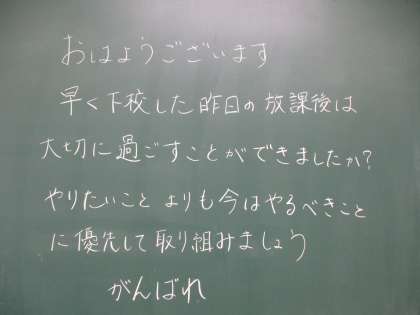 おはようございます
早く下校した昨日の放課後は
大切に過ごすことができましたか?
やりたいことよりも今はやるべきこと
に優先して取り組みましょう
がんばれ